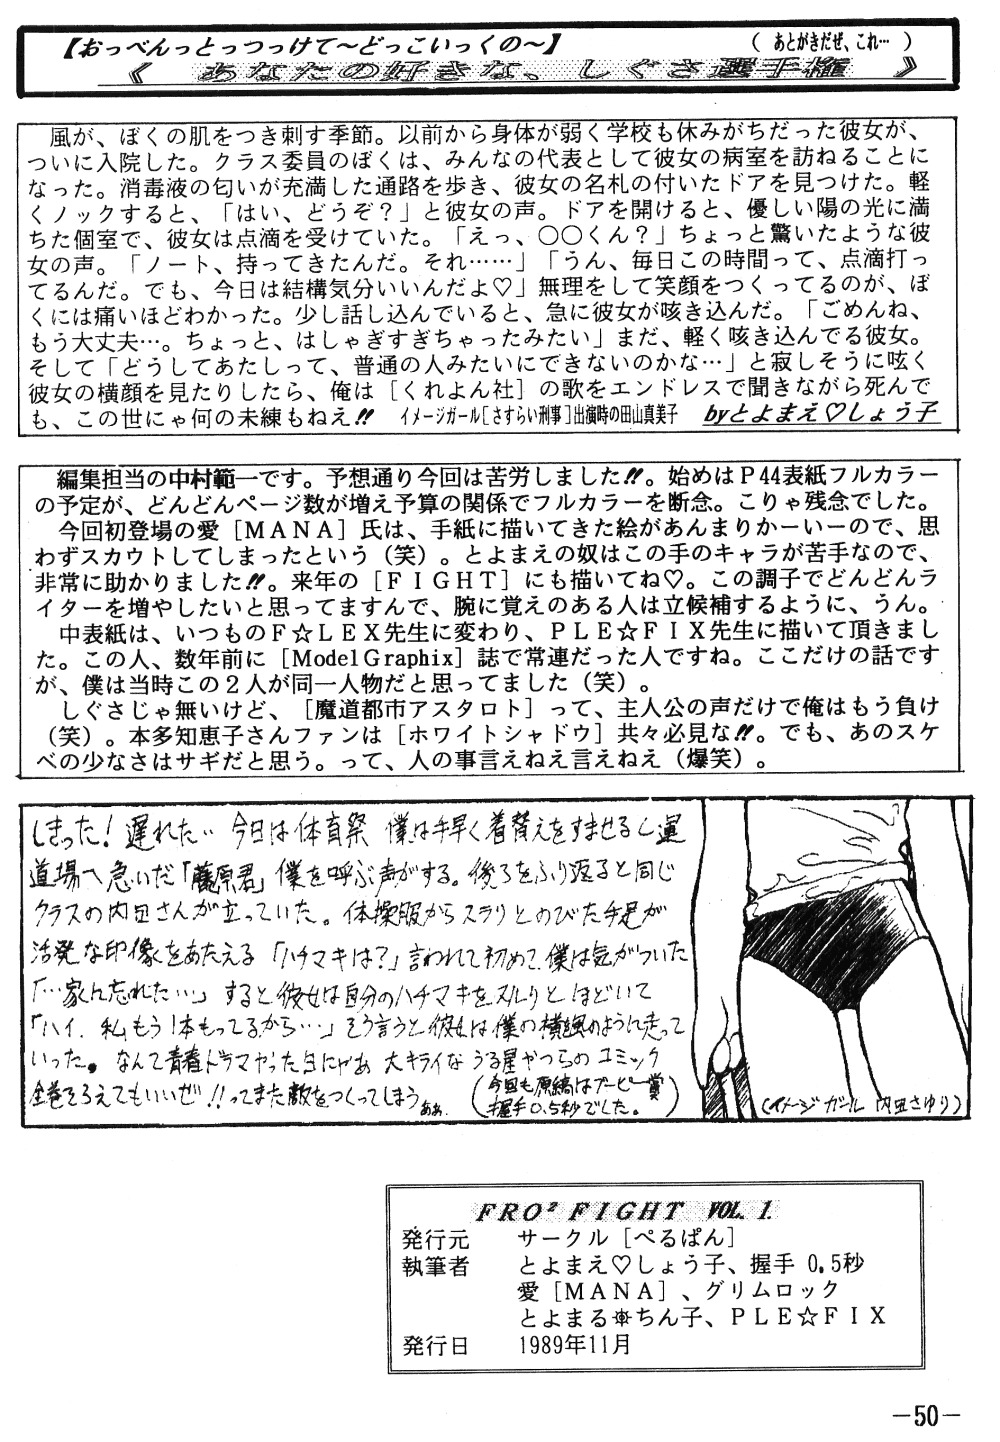 【おっべんっとっつっけて～どっこいっくの～】
（ あとがきだぜ、これ… ）
《 あなたの好きな、しぐさ選手権 》
風が、ぼくの肌をつき刺す季節。以前から身体が弱く学校も休みがちだった彼女が、
ついに入院した。クラス委員のぼくは、みんなの代表として彼女の病室を訪ねることに
なった。消毒液の匂いが充満した通路を歩き、彼女の名札の付いたドアを見つけた。軽
くノックすると、「はい、どうぞ？」と彼女の声。ドアを開けると、優しい陽の光に満
ちた個室で、彼女は点滴を受けていた。「えっ、○○くん？」ちょっと驚いたような彼
女の声。「ノート、持ってきたんだ。それ……」「うん、毎日この時間って、点滴打っ
てるんだ。でも、今日は結構気分いいんだよ♡」無理をして笑顔をつくってるのが、ぼ
くには痛いほどわかった。少し話し込んでいると、急に彼女が咳き込んだ。「ごめんね、
もう大丈夫…。ちょっと、はしゃぎすぎちゃったみたい」まだ、軽く咳き込んでる彼女。
そして「どうしてあたしって、普通の人みたいにできないのかな…」と寂しそうに呟く
彼女の横顔を見たりしたら、俺は［くれよん社］の歌をエンドレスで聞きながら死んで
も、この世にゃ何の未練もねえ!! イメージガール［さすらい刑事］出演時の田山真美子 byとよまえ♡しょう子
編集担当の中村範一です。予想通り今回は苦労しました!!。始めはＰ44表紙フルカラー
の予定が、どんどんページ数が増え予算の関係でフルカラーを断念。こりゃ残念でした。
今回初登場の愛［ＭＡＮＡ］氏は、手紙に描いてきた絵があんまりかーいーので、思
わずスカウトしてしまったという（笑）。とよまえの奴はこの手のキャラが苦手なので、
非常に助かりました!!。来年の［ＦＩＧＨＴ］にも描いてね♡。この調子でどんどんラ
イターを増やしたいと思ってますんで、腕に覚えのある人は立候補するように、うん。
中表紙は、いつものＦ☆ＬＥＸ先生に変わり、ＰＬＥ☆ＦＩＸ先生に描いて頂きまし
た。この人、数年前に［Model Graphix］誌で常連だった人ですね。ここだけの話です
が、僕は当時この２人が同一人物だと思ってました（笑）。
しぐさじゃ無いけど、［魔道都市アスタロト］って、主人公の声だけで俺はもう負け
（笑）。本多知恵子さんファンは［ホワイトシャドウ］共々必見な!!。でも、あのスケ
ベの少なさはサギだと思う。って、人の事言えねえ言えねえ（爆笑）。
しまった！遅れた… 今日は体育祭 僕は手早く着替えをすませると運
道場へ急いだ「藤原君」僕を呼ぶ声がする。後ろをふり返ると同じ
クラスの内田さんが立っていた。体操服からスラリとのびた手足が
活発な印像をあたえる「ハチマキは？」言われて初めて僕は気がついた
「…家に忘れた…」すると彼女は自分のハチマキをスルリとほどいて
「ハイ. 私もう1本もってるから…」そう言うと彼女は僕の横を風のように走って
いった。なんて青春ドラマやった日にゃあ 大キライなうる星やつらのコミック
全巻そろえてもいいぜ!!ってまた敵をつくってしまう ああ.
（今回も原稿はブービー賞
握手0.5秒でした。）
（イメージガール 内田さゆり）
ＦＲＯ² ＦＩＧＨＴ VOL. 1.
発行元 サークル［ぺるぱん］
執筆者 とよまえ♡しょう子、握手 0.5秒
愛［ＭＡＮＡ］、グリムロック
とよまる☸ちん子、ＰＬＥ☆ＦＩＸ
発行日 1989年11月
－50－